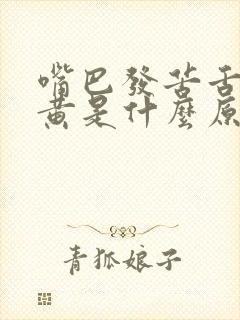 嘴巴發苦舌
黃是什麼原
青狐娘子